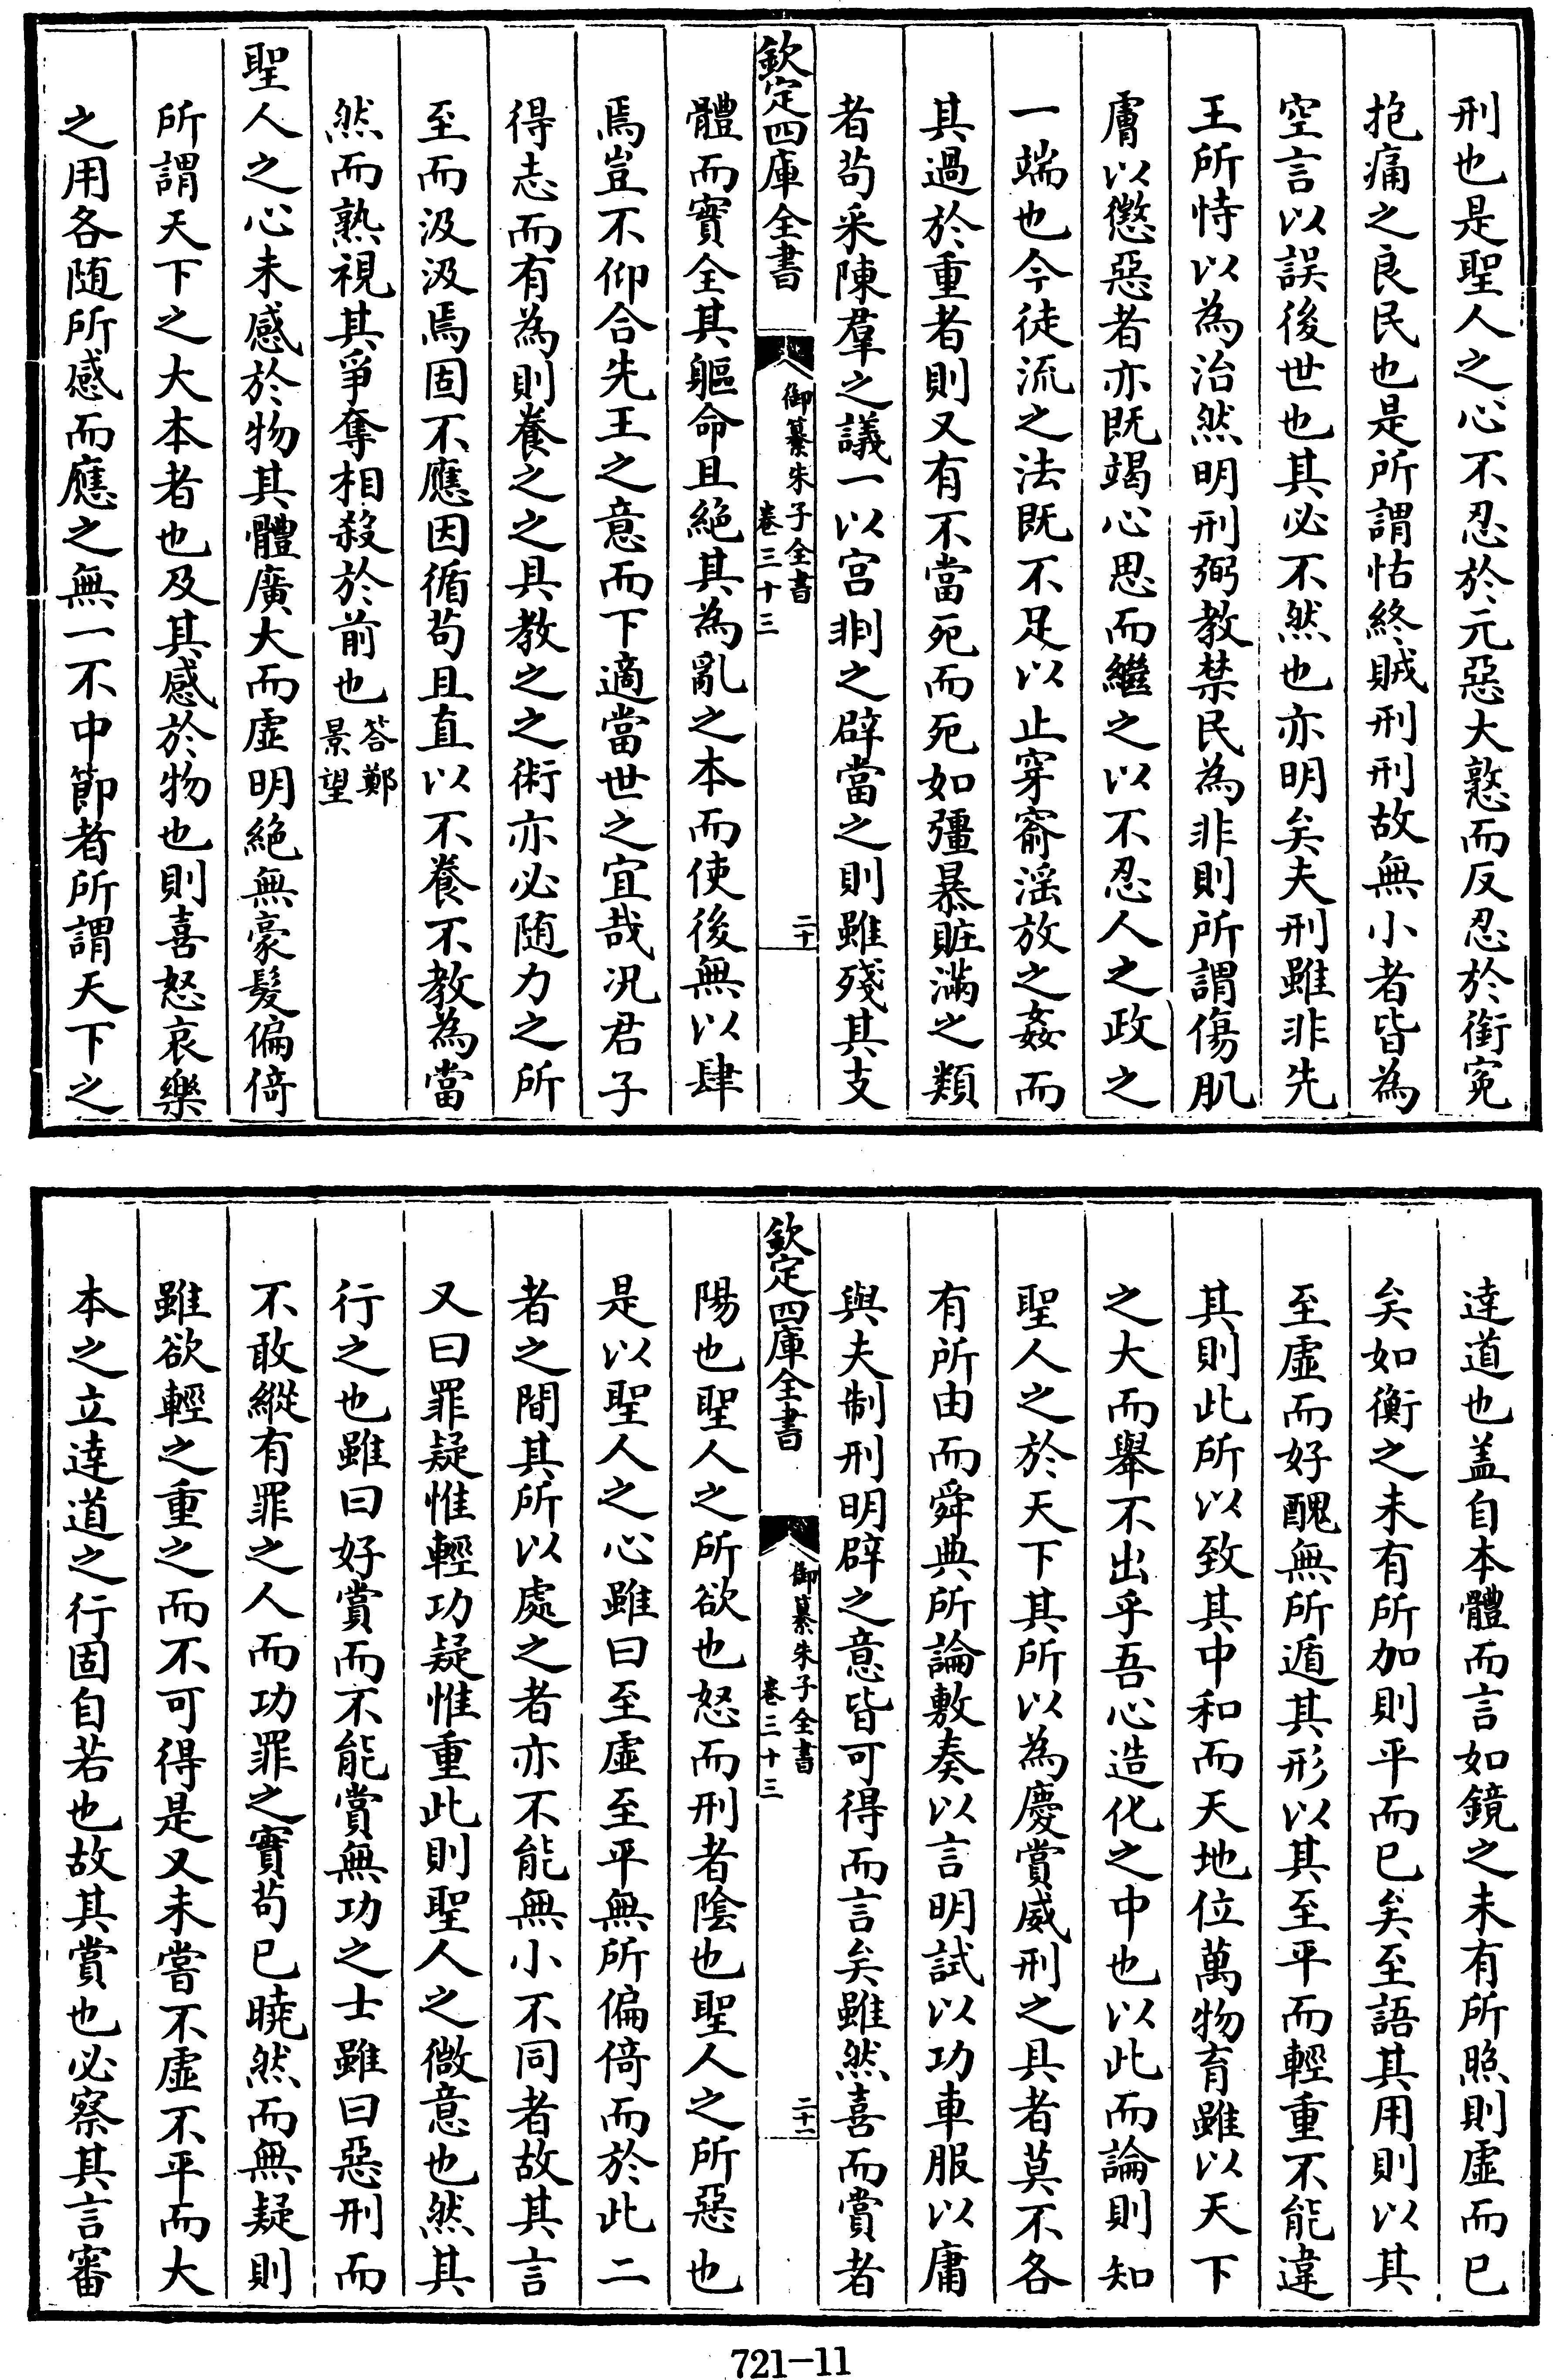 刑也是聖人之心不忍於元惡大憝而反忍於銜寃
抱痛之良民也是所謂怙終賊刑刑故無小者皆為
空言以誤後世也其必不然也亦明矣夫刑雖非先
王所恃以為治然明刑弼教禁民為非則所謂傷肌
膚以懲惡者亦既竭心思而繼之以不忍人之政之
一端也今徒流之法既不足以止穿窬淫放之姦而
其過於重者則又有不當死而死如彊暴贓滿之類
者苟采陳羣之議一以宫剕之辟當之則雖殘其支
欽定四庫全書
御纂朱子全書
卷三十三
二十
體而實全其軀命且絶其為亂之本而使後無以肆
焉豈不仰合先王之意而下適當世之宜哉况君子
得志而有為則養之之具教之之術亦必随力之所
至而汲汲焉固不應因循苟且直以不養不教為當
然而熟視其爭奪相殺於前也答鄭景望
聖人之心未感於物其體廣大而虚明絶無豪髮偏倚
所謂天下之大本者也及其感於物也則喜怒哀樂
之用各随所感而應之無一不中節者所謂天下之
達道也盖自本體而言如鏡之未有所照則虚而已
矣如衡之未有所加則平而已矣至語其用則以其
至虚而好醜無所遁其形以其至平而輕重不能違
其則此所以致其中和而天地位萬物育雖以天下
之大而舉不出乎吾心造化之中也以此而論則知
聖人之於天下其所以為慶賞威刑之具者莫不各
有所由而舜典所論敷奏以言明試以功車服以庸
與夫制刑明辟之意皆可得而言矣雖然喜而賞者
欽定四庫全書
御纂朱子全書
卷三十三
二十一
陽也聖人之所欲也怒而刑者陰也聖人之所惡也
是以聖人之心雖曰至虚至平無所偏倚而於此二
者之間其所以處之者亦不能無小不同者故其言
又曰罪疑惟輕功疑惟重此則聖人之微意也然其
行之也雖曰好賞而不能賞無功之士雖曰惡刑而
不敢縱有罪之人而功罪之實苟已曉然而無疑則
雖欲輕之重之而不可得是又未嘗不虚不平而大
本之立達道之行固自若也故其賞也必察其言審
721-11